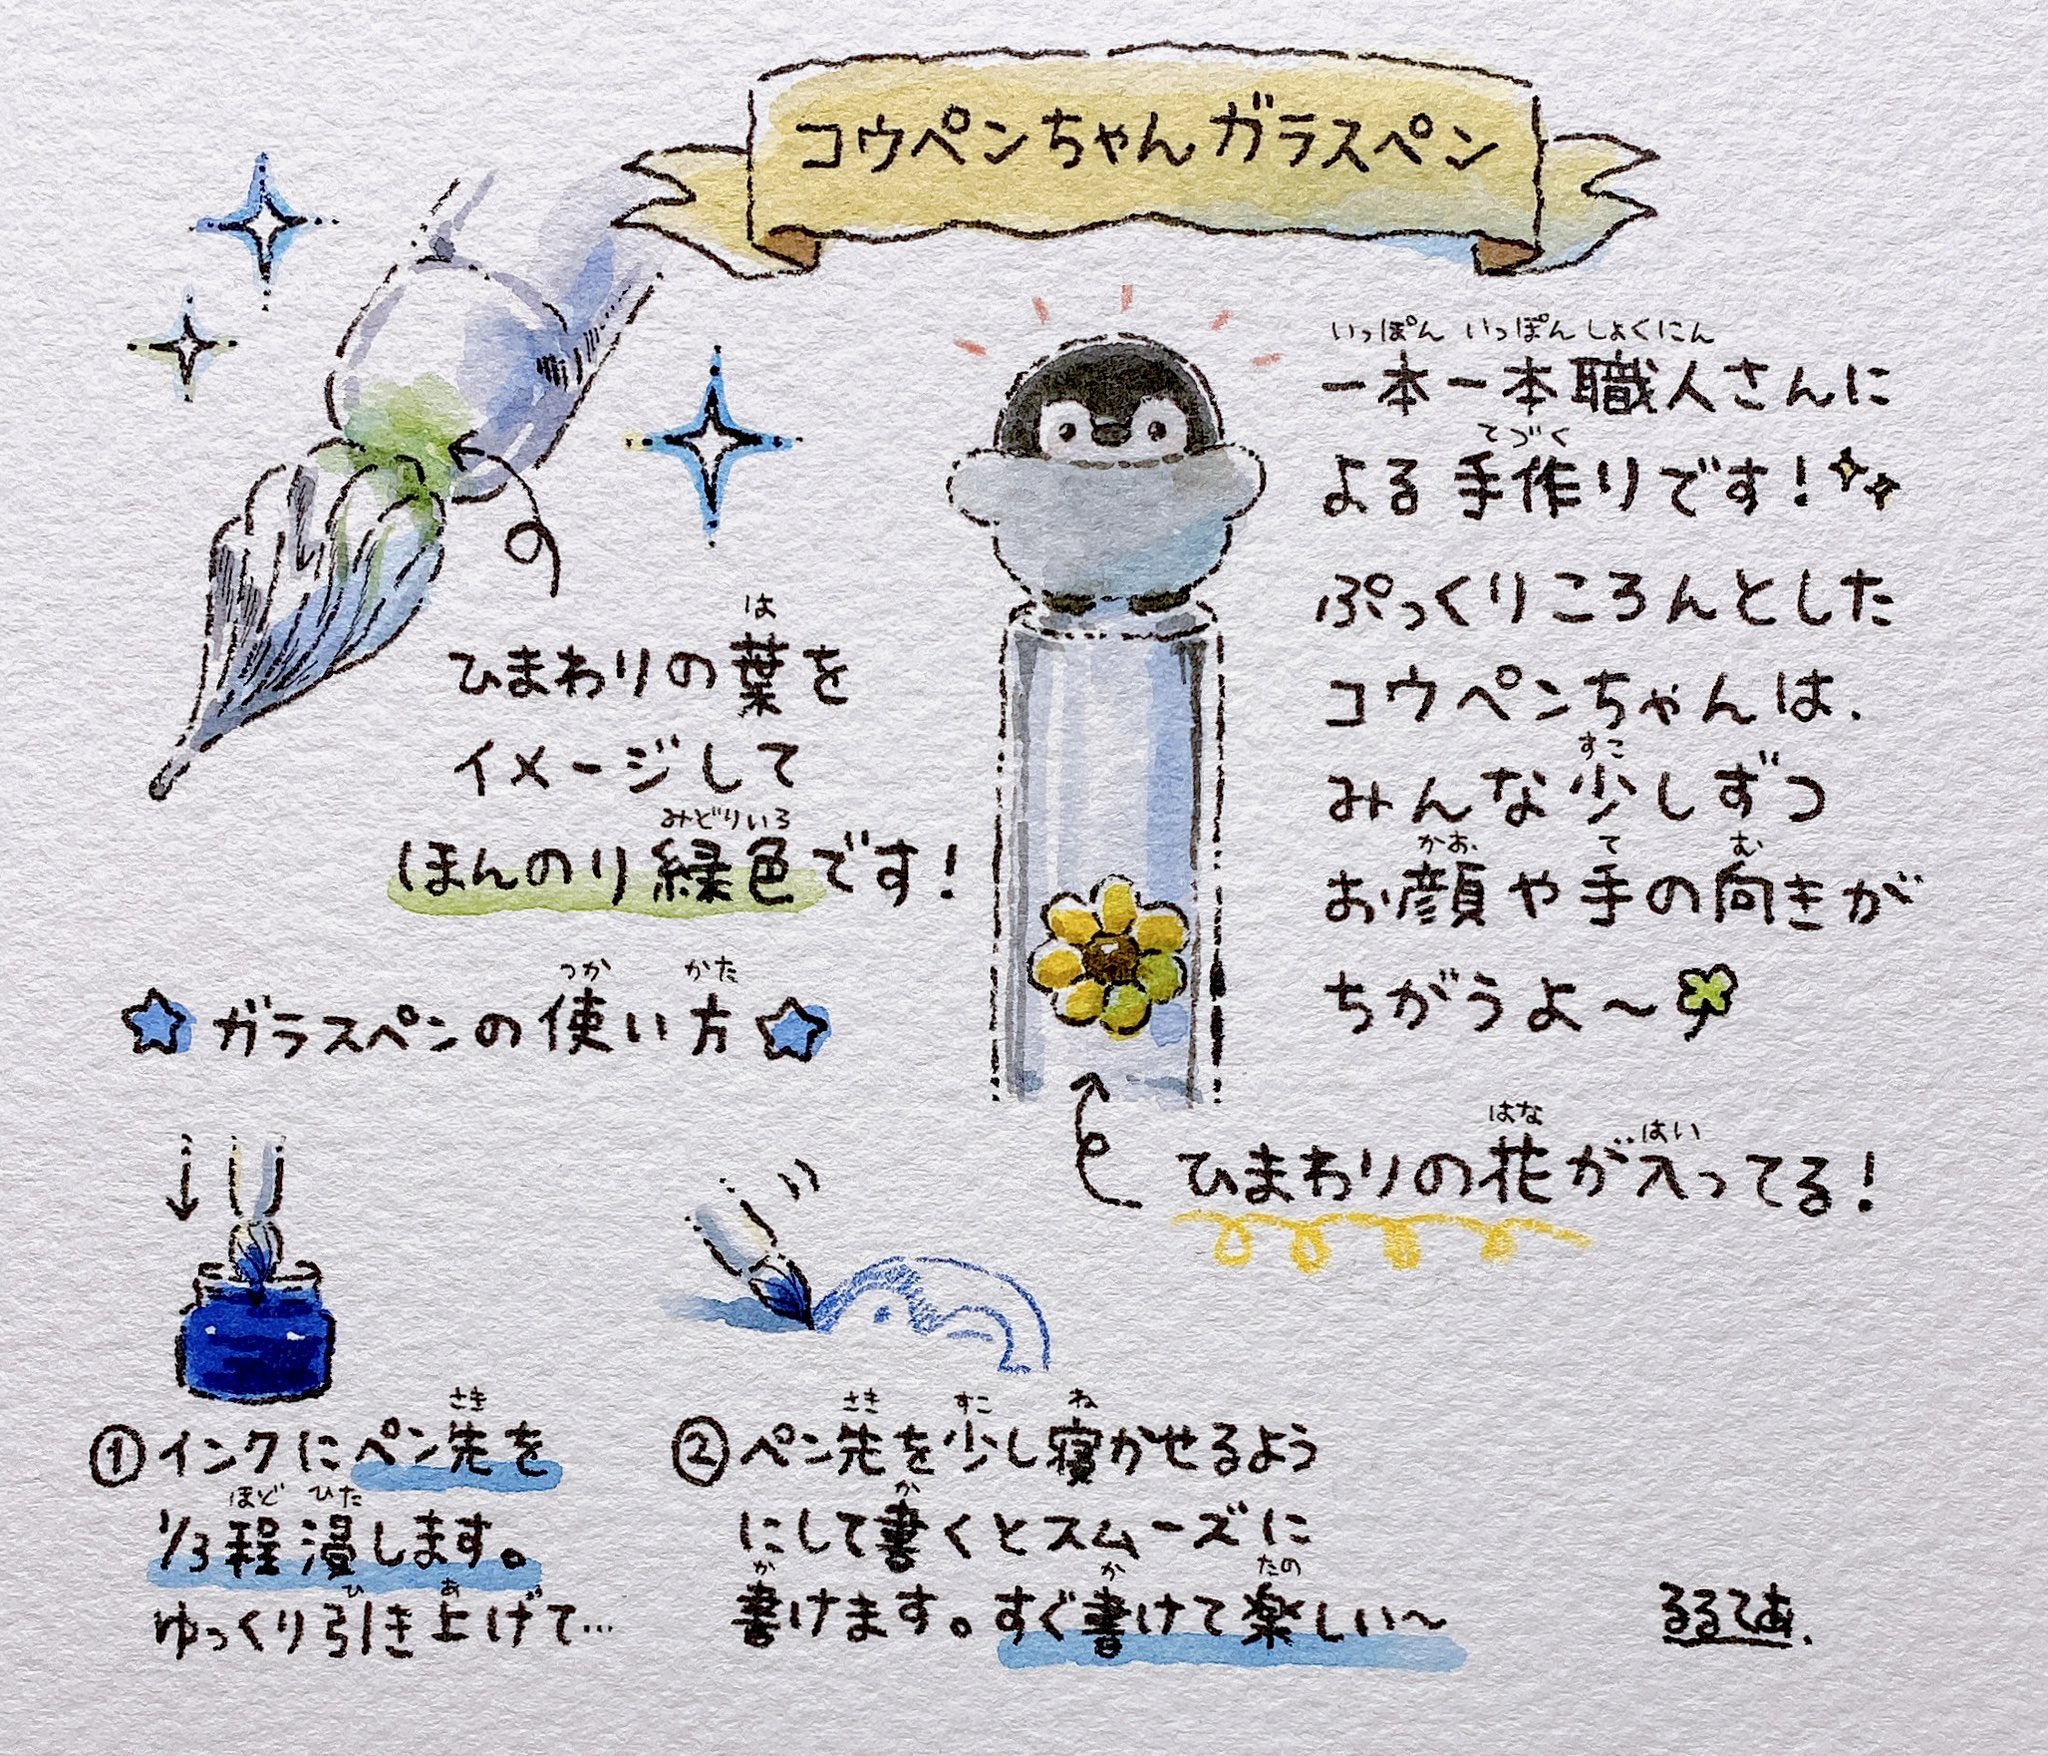 コウペンちゃんガラスペン
いっぽん いっぽんしょくにん
一本一本職人さんに
てづく
よる手作りです!
ぷっくりころんとした
コウペンちゃんは、
すこ
みんな少しずつ
かお て む
お顔や手の向きが
ちがうよ〜
はな はい
ひまわりの花が入ってる!
は
ひまわりの葉を
イメージして
みどりいろ
ほんのり緑色です!
つか かた
☆ガラスペンの使い方☆
さき
①インクにペン先を
ほど ひた
1/3程浸します。
ひ あ
ゆっくり引き上げて…
さき すこ ね
②ペン先を少し寝かせるよう
か
にして書くとスムーズに
か か たの
書けます。すぐ書けて楽しい〜
るるてあ